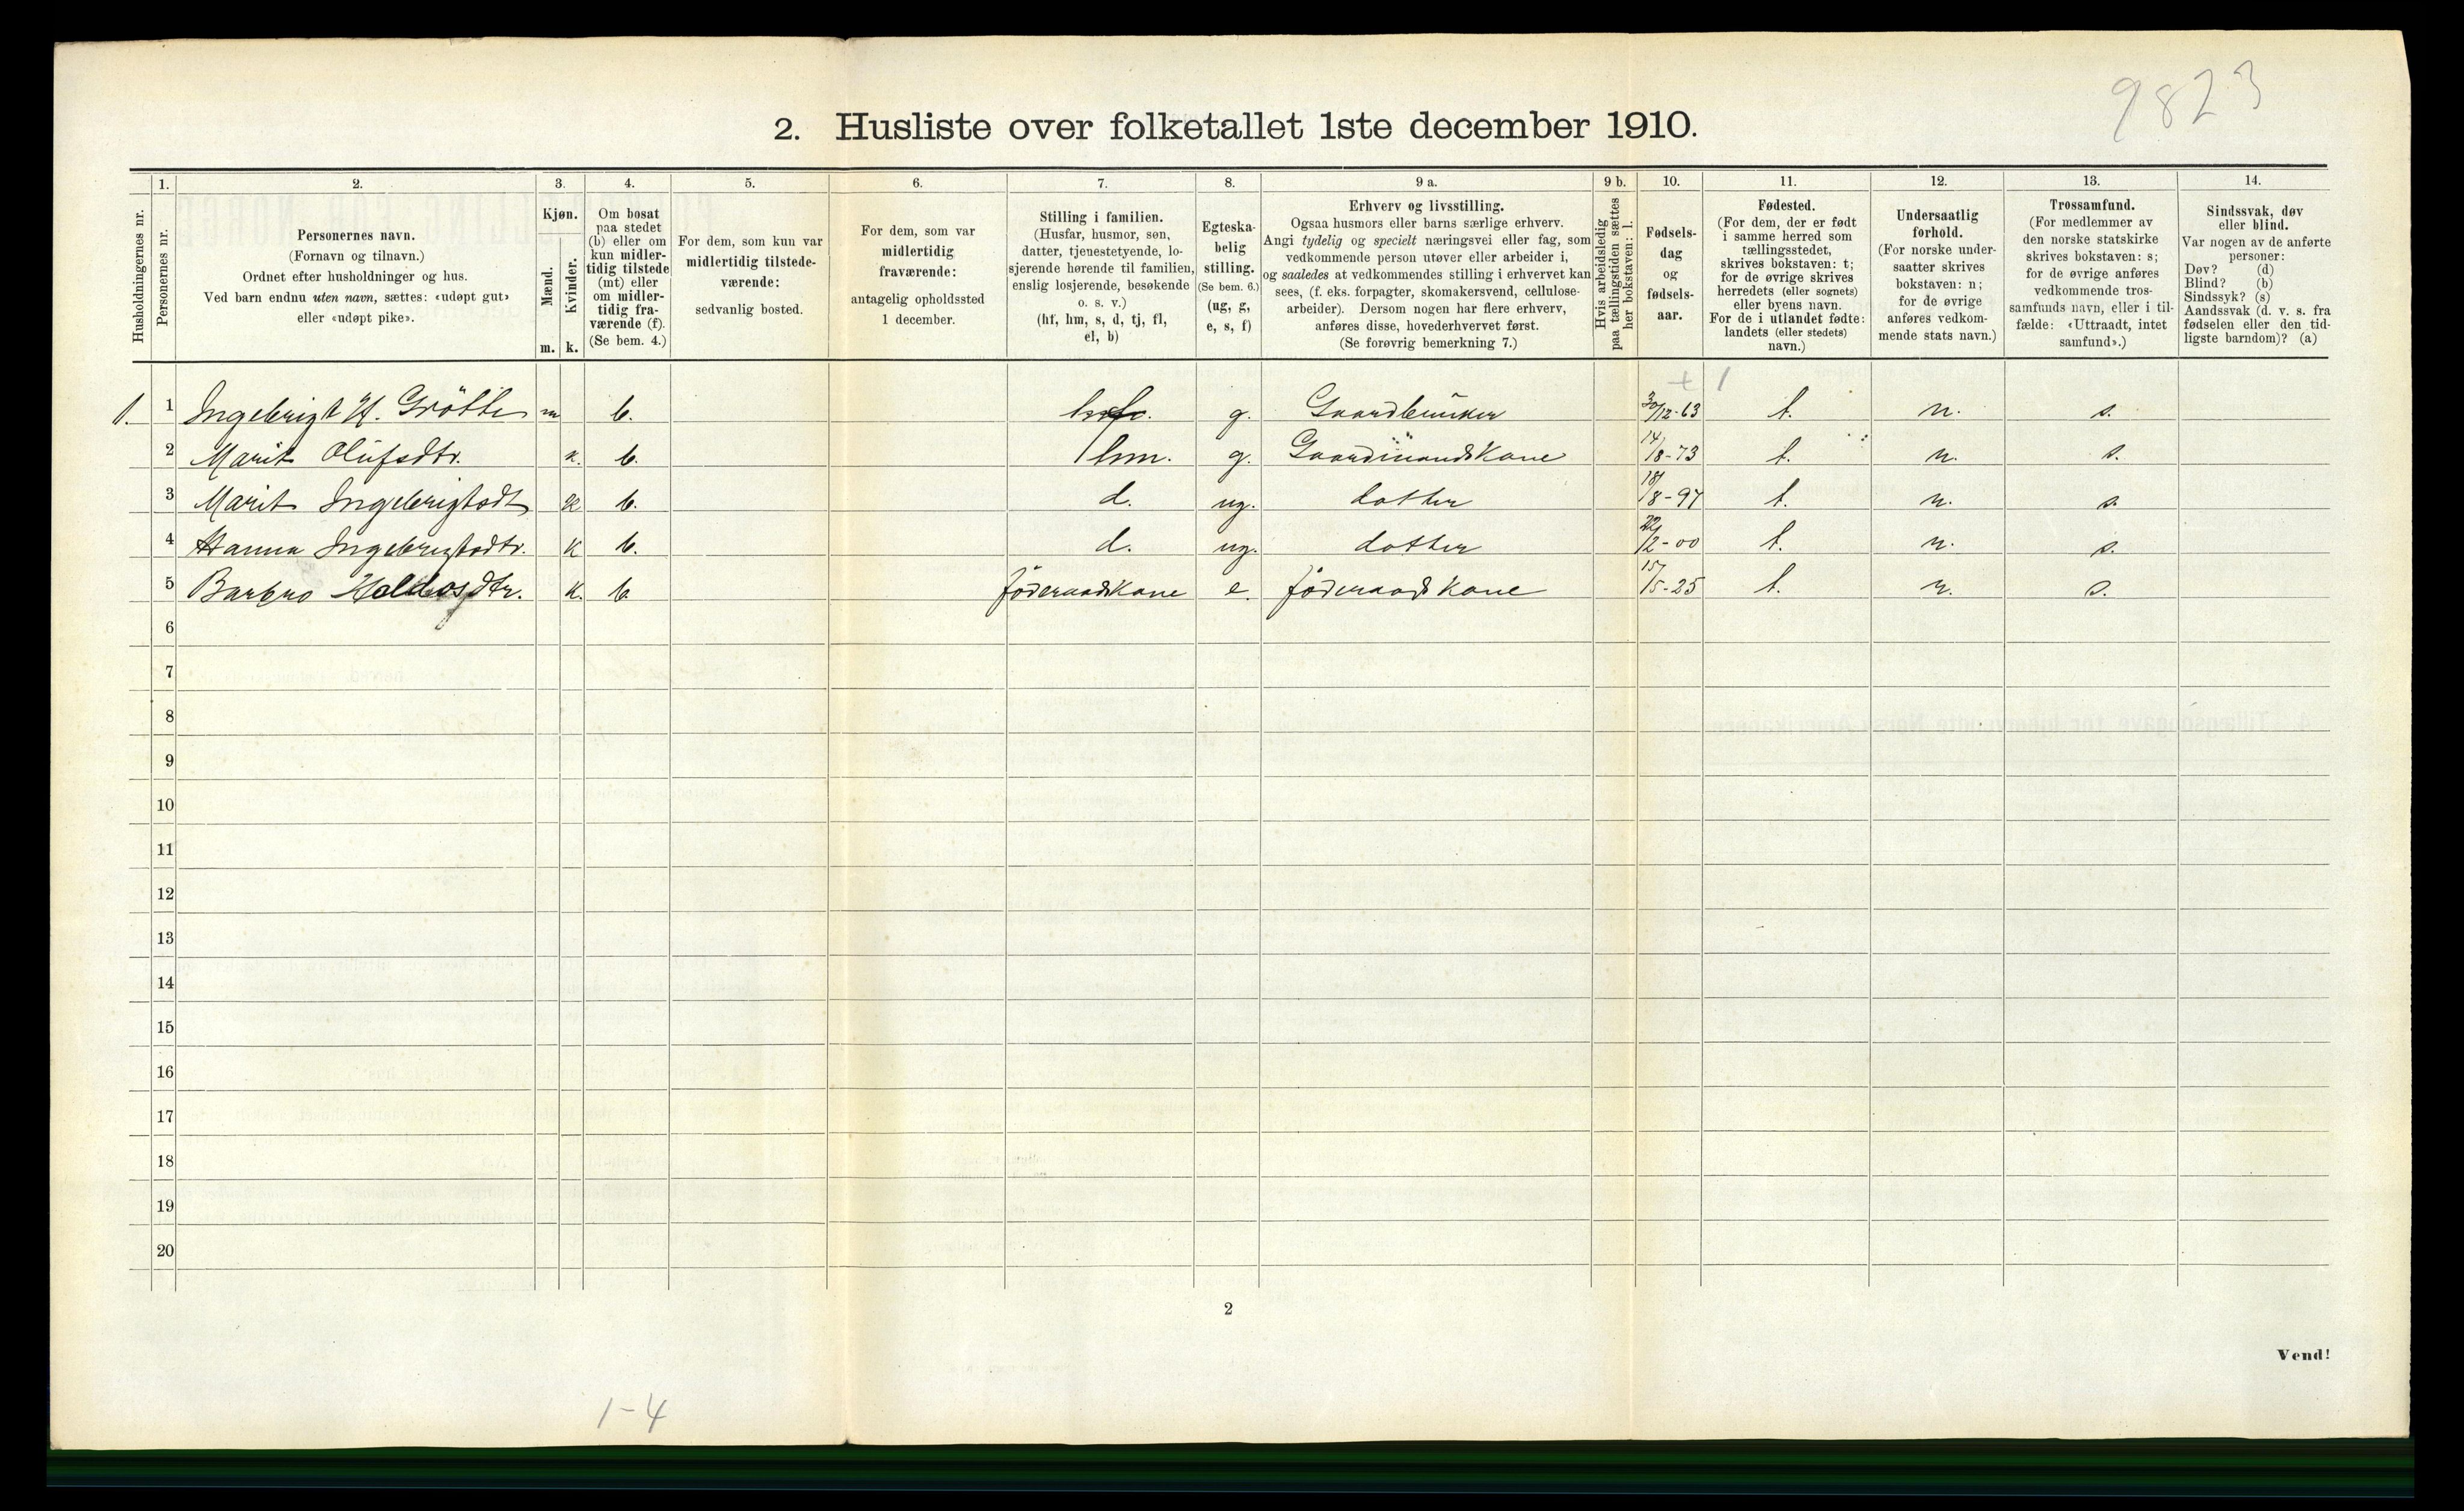 9823
2. Husliste over folketallet 1ste december 1910.
Husholdningernes nr.
1.
Personernes nr.
2.
Personernes navn.
(Fornavn og tilnavn.)
Ordnet efter husholdninger og hus.
Ved barn endnu uten navn, sættes: «udøpt gut»
eller «udøpt pike».
3.
Kjøn.
Mænd.
Kvinder.
m. k.
4.
Om bosat
paa stedet
(b) eller om
kun midler-
tidig tilstede
(mt) eller
om midler-
tidig fra-
værende (f).
(Se bem. 4.)
5.
For dem, som kun var
midlertidig tilstede-
værende:
sedvanlig bosted.
6.
For dem, som var
midlertidig
fraværende:
antagelig opholdssted
1 december.
7.
Stilling i familien.
(Husfar, husmor, søn,
datter, tjenestetyende, lo-
sjerende hørende til familien,
enslig losjerende, besøkende
o. s. v.)
(hf, hm, s, d, tj, fl,
el, b)
8.
Egteska-
belig
stilling.
(Se bem. 6.)
(ug, g,
e, s, f)
9 a.
Erhverv og livsstilling.
Ogsaa husmors eller barns særlige erhverv.
Angi tydelig og specielt næringsvei eller fag, som
vedkommende person utøver eller arbeider i,
og saaledes at vedkommendes stilling i erhvervet kan
sees, (f. eks. forpagter, skomakersvend, cellulose-
arbeider). Dersom nogen har flere erhverv,
anføres disse, hovederhvervet først.
(Se forøvrig bemerkning 7.)
9 b.
Hvis arbeidsledig
paa tællingstiden sættes
her bokstaven: l.
10.
Fødsels-
dag
og
fødsels-
aar.
11.
Fødested.
(For dem, der er født
i samme herred som
tællingsstedet,
skrives bokstaven: t;
for de øvrige skrives
herredets (eller sognets)
eller byens navn.
For de i utlandet fødte:
landets (eller stedets)
navn.)
12.
Undersaatlig
forhold.
(For norske under-
saatter skrives
bokstaven: n;
for de øvrige
anføres vedkom-
mende stats navn.)
13.
Trossamfund.
(For medlemmer av
den norske statskirke
skrives bokstaven: s;
for de øvrige anføres
vedkommende tros-
samfunds navn, eller i til-
fælde: «Uttraadt, intet
samfund».)
14.
Sindssvak, døv
eller blind.
Var nogen av de anførte
personer:
Døv? (d)
Blind? (b)
Sindssyk? (s)
Aandssvak (d. v. s. fra
fødselen eller den tid-
ligste barndom)? (a)
+ 1
1. 1 Ingebrigt H. Grötte m b. g. Gaardbruker 30/12-63 t. n. s.
2 Marit Olufsdtr. k. b. hm. g. Gaardmandskone 14/8-73 t. n. s.
3 Marit Ingebrigtsdt k b. d. ug. dotter 18/8-97 t. n. s.
4 Hanna Ingebrigtsdtr. k b. d. ug. dotter 22/2-00 t. n. s.
5 Barbro Haldosdtr. k. b föderaadskone e. föderaadskone 15/5-25 t. n. s.
6
7
8
9
10
11
12
13
14
15
16
17
18
19
20
2
Vend!
1-4